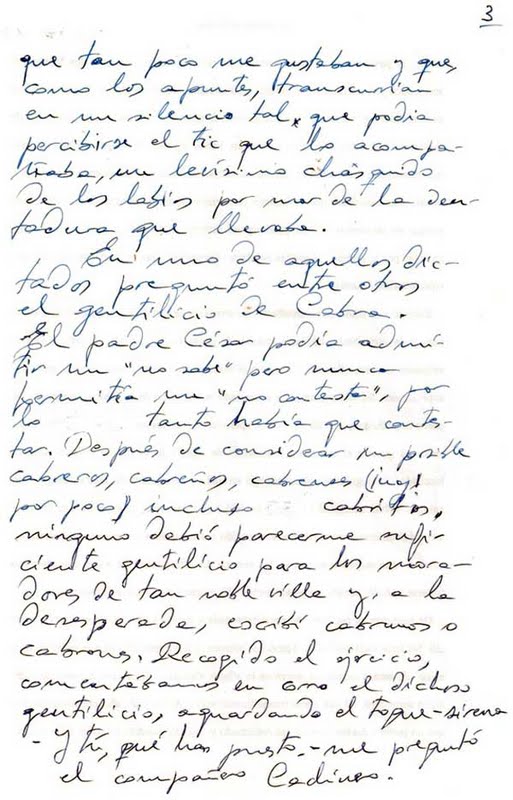 3
que tan poco me gustaban y que,
como los apuntes, transcurrían
en un silencio tal, que podía
percibirse el tic que lo acompa-
ñaba, un levísimo chasquido
de los labios por mor de la den-
tadura que llevaba.
En uno de aquellos dic-
tados preguntó entre otros
el gentilicio de Cabra.
El padre César podía admi-
tir un "no sabe" pero nunca
permitía un "no contesta", por
lo tanto había que contes-
tar. Después de considerar un posible
cabreros, cabreños, cabrenses (¡uy!
por poco) incluso cabritos,
ninguno debió parecerme sufi-
ciente gentilicio para los mora-
dores de tan noble villa y, a la
desesperada, escribí cabrunos o
cabrones. Recogido el ejercicio,
comentábamos en corro el dichoso
gentilicio, aguardando el toque-sirena
- Y tú, qué has puesto.- me preguntó
el compañero